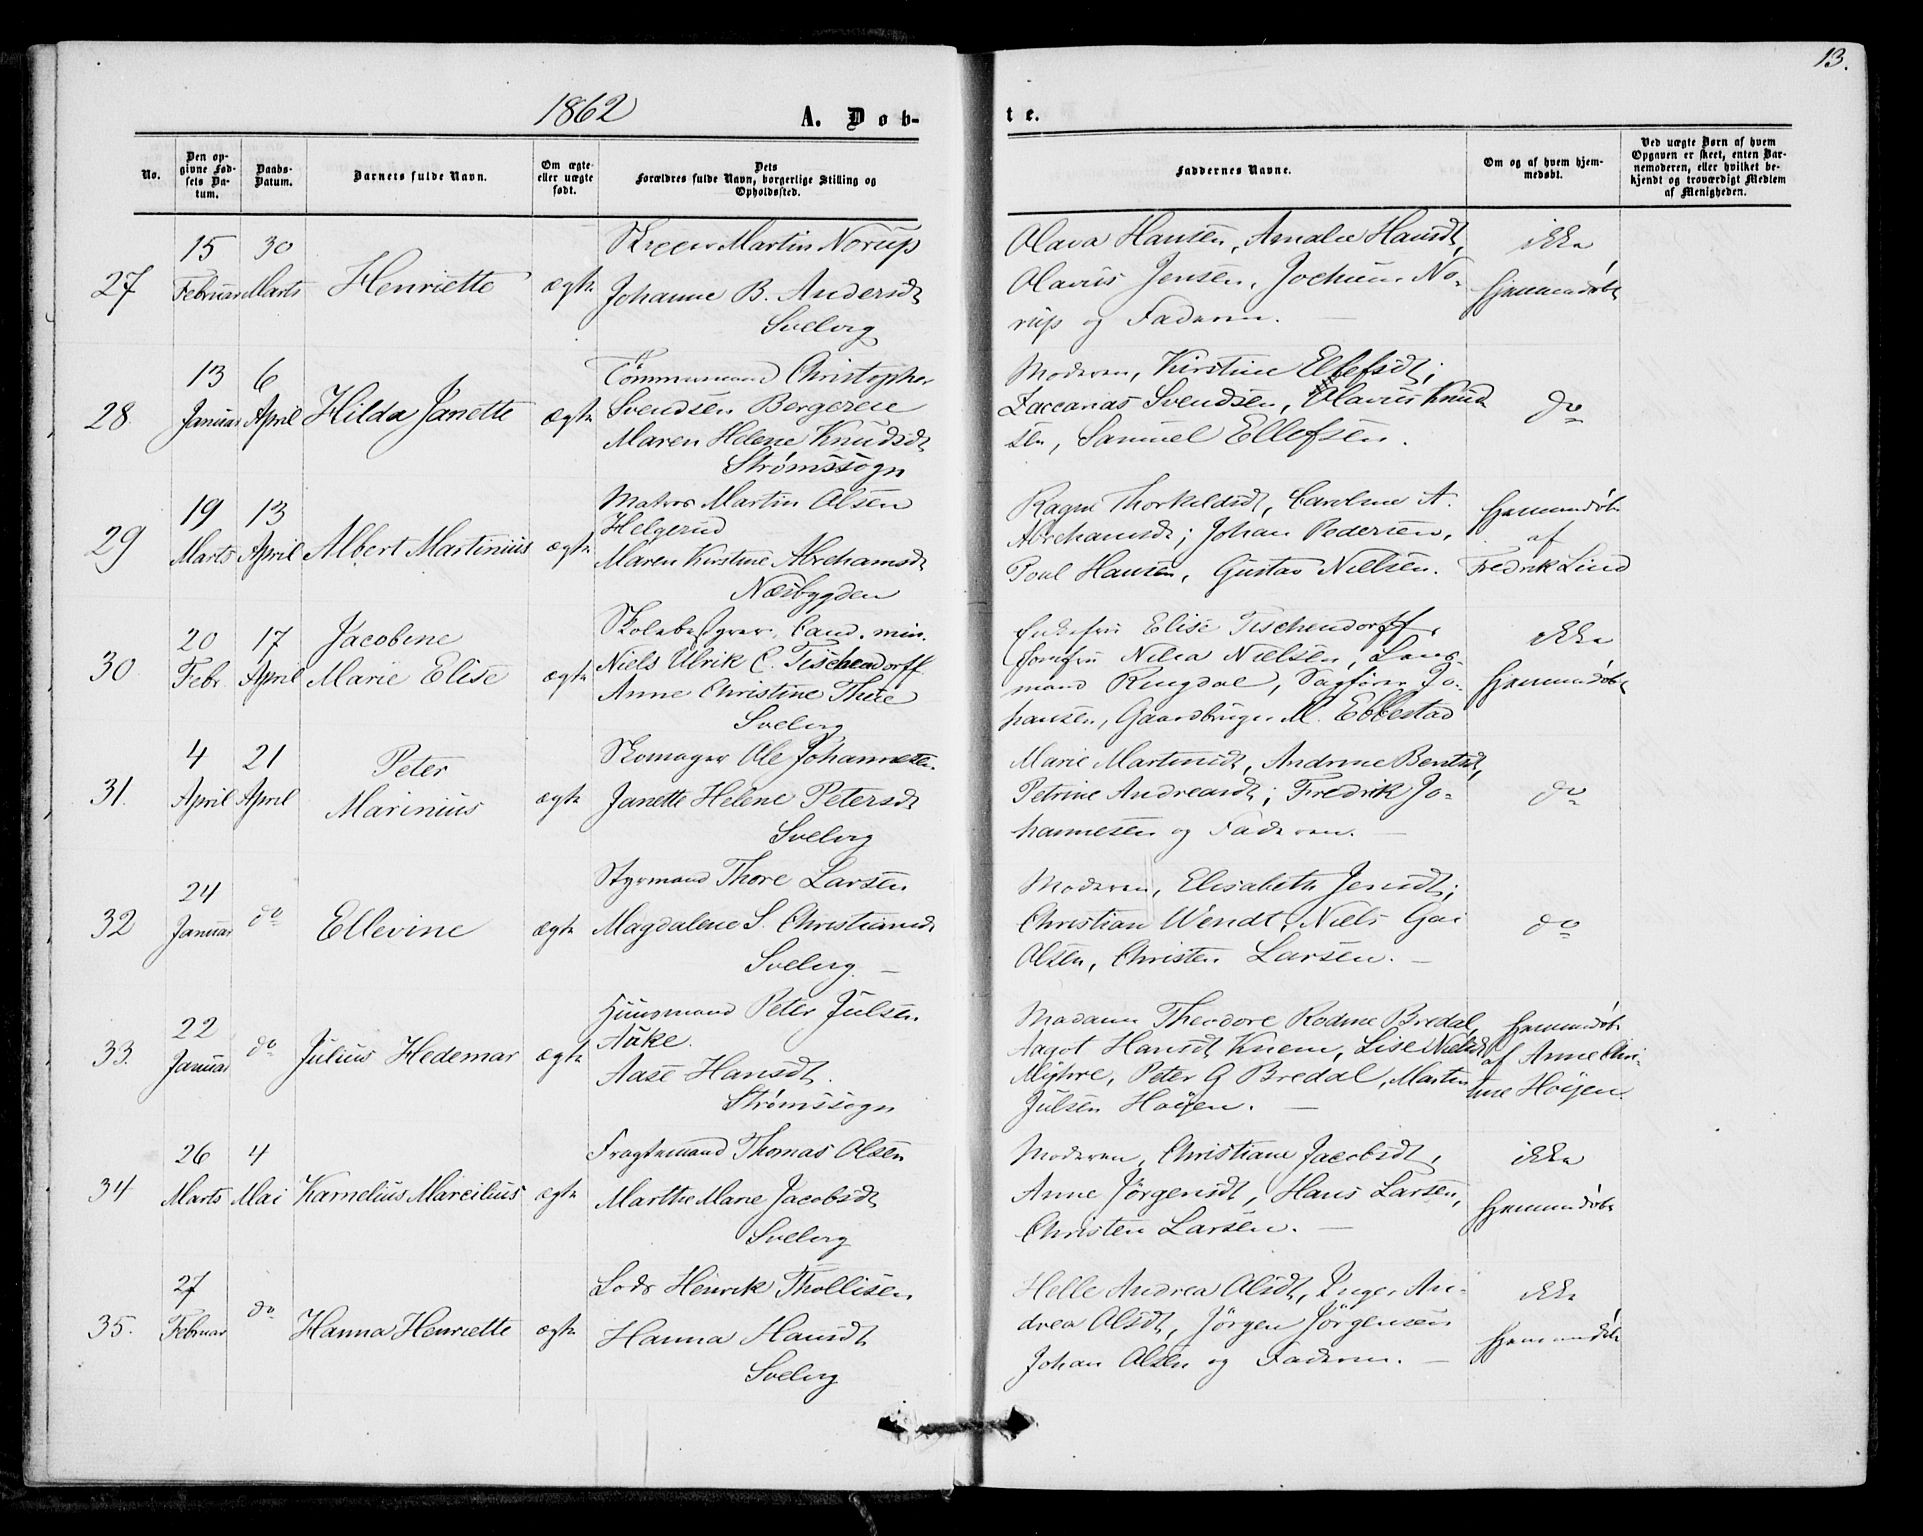 13.
1862
A. Døb-
te.
No.
Den op-
givne Fød-
sels Da-
tum.
Daabs-
Datum.
Barnets fulde Navn.
Om ægte
eller uægte
født.
Dets
Forældres fulde Navn, borgerlige Stilling og
Opholdssted.
Faddernes Navne.
Om og af hvem hjem-
medøbt.
Ved uægte Børn af hvem
Opgaven er skeet, enten Bar-
nemoderen, eller hvilket be-
kjendt og troværdigt Medlem
af Menigheden.
27
15
Februar
30
Marts
Henriette
ægte
Martin Norup
Johanne B. Andersdt
Svelvig
Olava Hansen, Amalie Hansdt,
Olavus Jensen, Jochum No-
rup og Faderen.
ikke
hjemmedøbt
28.
13
Januar
6
April
Hilda Janette
ægte
Tømmermand Christopher
Svendsen Bergereie
Maren Helene Knudsdt
Strømssogn
Moderen, Kirstine Ellefsdt;
Zaccarias Svendsen, Olavus Knud
sen, Samuel Ellefsen.
do
29
19
Marts
13
April
Albert Martinius
ægte
Matros Martin Olsen
Helgerud
Maren Kirstine Abrahamsdt
Næsbygden
Ragne Thorkildsdt, Caroline A.
Abrahamsdt; Johan Pedersen,
Poul Hansen, Gustav Nielsen.
hjemmedøbt
af
Fredrik Lind
30
20
Febr.
17
April
Jacobine
Marie Elise
ægte
Skolebestyrer, Cand. min.
Niels Ulrik C. Tischendorff
Anne Christine Thue
Svelvig
Enkefru Elise Tischendorff,
Jomfru Nilia Nielsen, Lens-
mand Ringdal, Sagfører Jo-
hansen, Gaardbruger M. Ebbestad
ikke
hjemmedøbt
31.
4
April
21
April
Peter
Marinius
ægte
Skomager Ole Johannesen.
Janette Helene Petersdt
Svelvig
Marie Martinsdt, Andrine Bentsdt,
Petrine Andreasdt; Fredrik Jo-
hannesen og Faderen.
do
32
24
Januar
do
Ellevine
ægte
Styrmand Thore Larsen
Magdalene S. Christiansdt
Svelvig.
Moderen, Elisabeth Jensdt;
Christian Wendt, Niels
Olsen, Christen Larsen.
do
33.
22
Januar
do
Julius Hedemar
ægte
Huusmand Peter Julsen
Auke.
Aase Hansdt.
Strømssogn
Madame Theodore Rodine Bredal,
Aagot Hansdt Knem, Lise Nielsdt
Myhre, Peter G Bredal, Martin
Julsen Høijen.
hjemmedøbt
af Anne Chri-
tine Høijen.
34
26
Marts
4
Mai
Karnelius Marcilius
ægte
Fragtemand Thomas Olsen
Marthe Marie Jacobsdt
Svelvig
Moderen, Christiane Jacobsdt,
Anne Jørgensdt, Hans Larsen,
Christen Larsen.
ikke
hjemmedøbt
35.
27
Februar
do
Hanna Henriette
ægte
Lods Henrik Thollisen
Hanna Hansdt
Svelvig
Helle Andrea Olsdt, Inger An-
drea Olsdt, Jørgen Jørgensen
Johan Olsen og Faderen.
ikke
hjemmedøbt